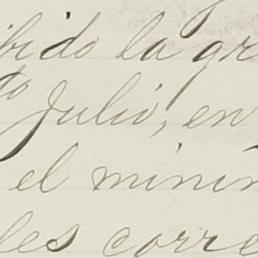 ibido la gr
do Julio, en
el minin
les corre